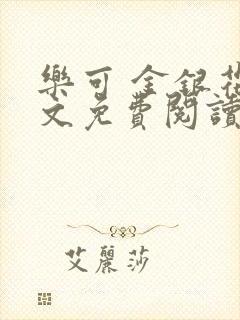 樂可 金銀花
文免費閱讀
艾麗莎